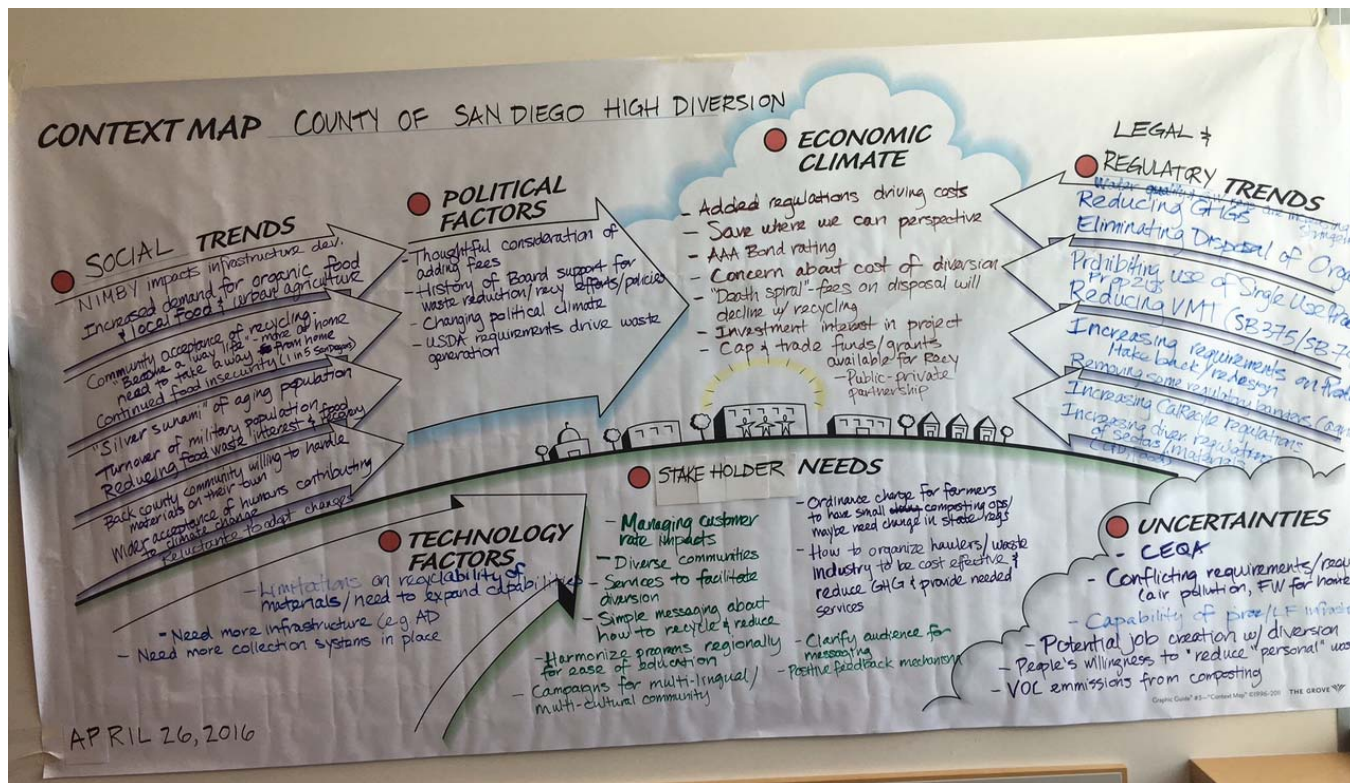 CONTEXT MAP COUNTY OF SAN DIEGO HIGH DIVERSION
SOCIAL TRENDS
NIMBY impacts infrastructure dev.
Increased demand for organic food
& local food & urban agriculture
Community acceptance of recycling.
"Become a "way life" - more at home
need to take a way from home
Continued food insecurity (1 in 5 San Diegans)
"Silver sunami" of aging population
Turnover of military population
Reducing food waste interest & food recovery
Back county community willing to handle
materials on their own
Wider acceptance of humans contributing
to climate change
Reluctance to adapt changes
POLITICAL
FACTORS
- Thoughtful consideration of
adding fees
- History of Board support for
waste reduction/recy efforts/policies
- Changing political climate
- USDA requirements drive waste
generation
ECONOMIC
CLIMATE
- Added regulations driving costs
- Save where we can perspective
- AAA Bond rating
- Concern about cost of diversion
- "Death spiral" - fees on disposal will
decline w/ recycling
- Investment interest in project
- Cap & trade funds/grants
available for Recy
- Public-private
partnership
LEGAL &
REGULATORY TRENDS
Reducing GHGs
Eliminating Disposal of
Prohibiting use of Single Use
Prop 218
Reducing VMT (SB375/SB
Increasing requirements on
take back/redesign
Removing some regulatory
Increasing CalRecycle Regulations
of sectors/materials
Increasing
TECHNOLOGY
FACTORS
- Limitations on recyclability of
materials/need to expand capabilities
- Need more infrastructure (e.g AD
- Need more collection systems in place
STAKE HOLDER NEEDS
- Managing customer
rate impacts
- Diverse communities
- Services to facilitate
diversion
- Simple messaging about
how to recycle & reduce
- Harmonize programs regionally
for ease of education
- Campaigns for multi-lingual/
multi-cultural community
- Ordinance change for farmers
to have small composting ops/
maybe need change in state regs
- How to organize haulers/waste
industry to be cost effective &
reduce GHG & provide needed
services
- Clarify audience for
messaging
- Positive feedback mechanism
UNCERTAINTIES
- CEQA
- Conflicting requirements/
(air pollution, FW for
- Capability of
- Potential job creation w/ diversion
- People's willingness to "reduce" personal
- VOC emmissions from composting
Graphic Guide® #3—"Context Map" ©1996-201 THE GROVE
APRIL 26, 2016